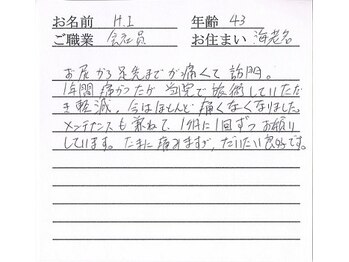 お名前 H.I 年齢 43
ご職業 会社員 お住まい 海老名
お尻から足先までが痛くて訪問。
1年間痛かったが当院で施術していただ
き軽減。今はほとんど痛くなくなりました。
メンテナンスも兼ねて、1ケ月に1回ずつお願い
しています。たまに痛みますが、だいたい良好です。